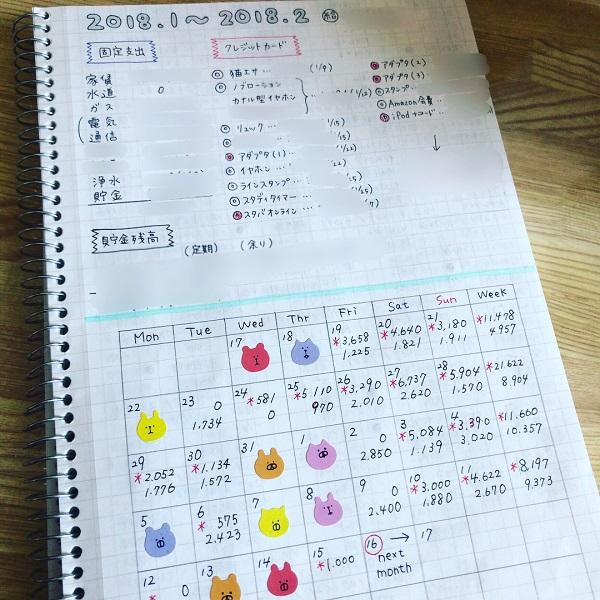 2018.1～2018.2 給
固定支出
クレジットカード
家賃
水道 0
ガス
電気
通信
浄水
貯金
◎ 猫エサ… (1/9)
◎ ノブローション
カナル型イヤホン … (1/12)
◎ リュック… (1/15)
◎ (1/15)
◎ アダプタ(1)… (1/22)
◎ イヤホン…
◎ ラインスタンプ…
◎ スタディタイマー…
スタバオンライン…
アダプタ(2)
アダプタ(3)
◎ スタンプ…
◎ Amazon会費…
iPod+コード…
↓
貯金残高
(定期) (余り)
Mon Tue Wed Thr Fri Sat Sun Week
17 18 19 20 21
*3,658 *4,640 *3,180 *11,478
1,225 1,821 1,911 4957
22 23 24 25 26 27 28
0 *581 *5,110 *3,290 *6,737 *5,904 *21,622
1,734 0 970 2,010 2,620 1,570 8,904
29 30 31 1 2 3 4
*2,052 *1,134 0 *5,084 *3,390 *11,660
1,776 1,572 2,850 1,139 3,020 10,357
5 6 7 8 9 10 11
575 0 *3,000 *4,622 *8,197
2,423 2,400 1,880 2,670 9,373
12 13 14 15 16 → 17
* 0 *1,000 next
month